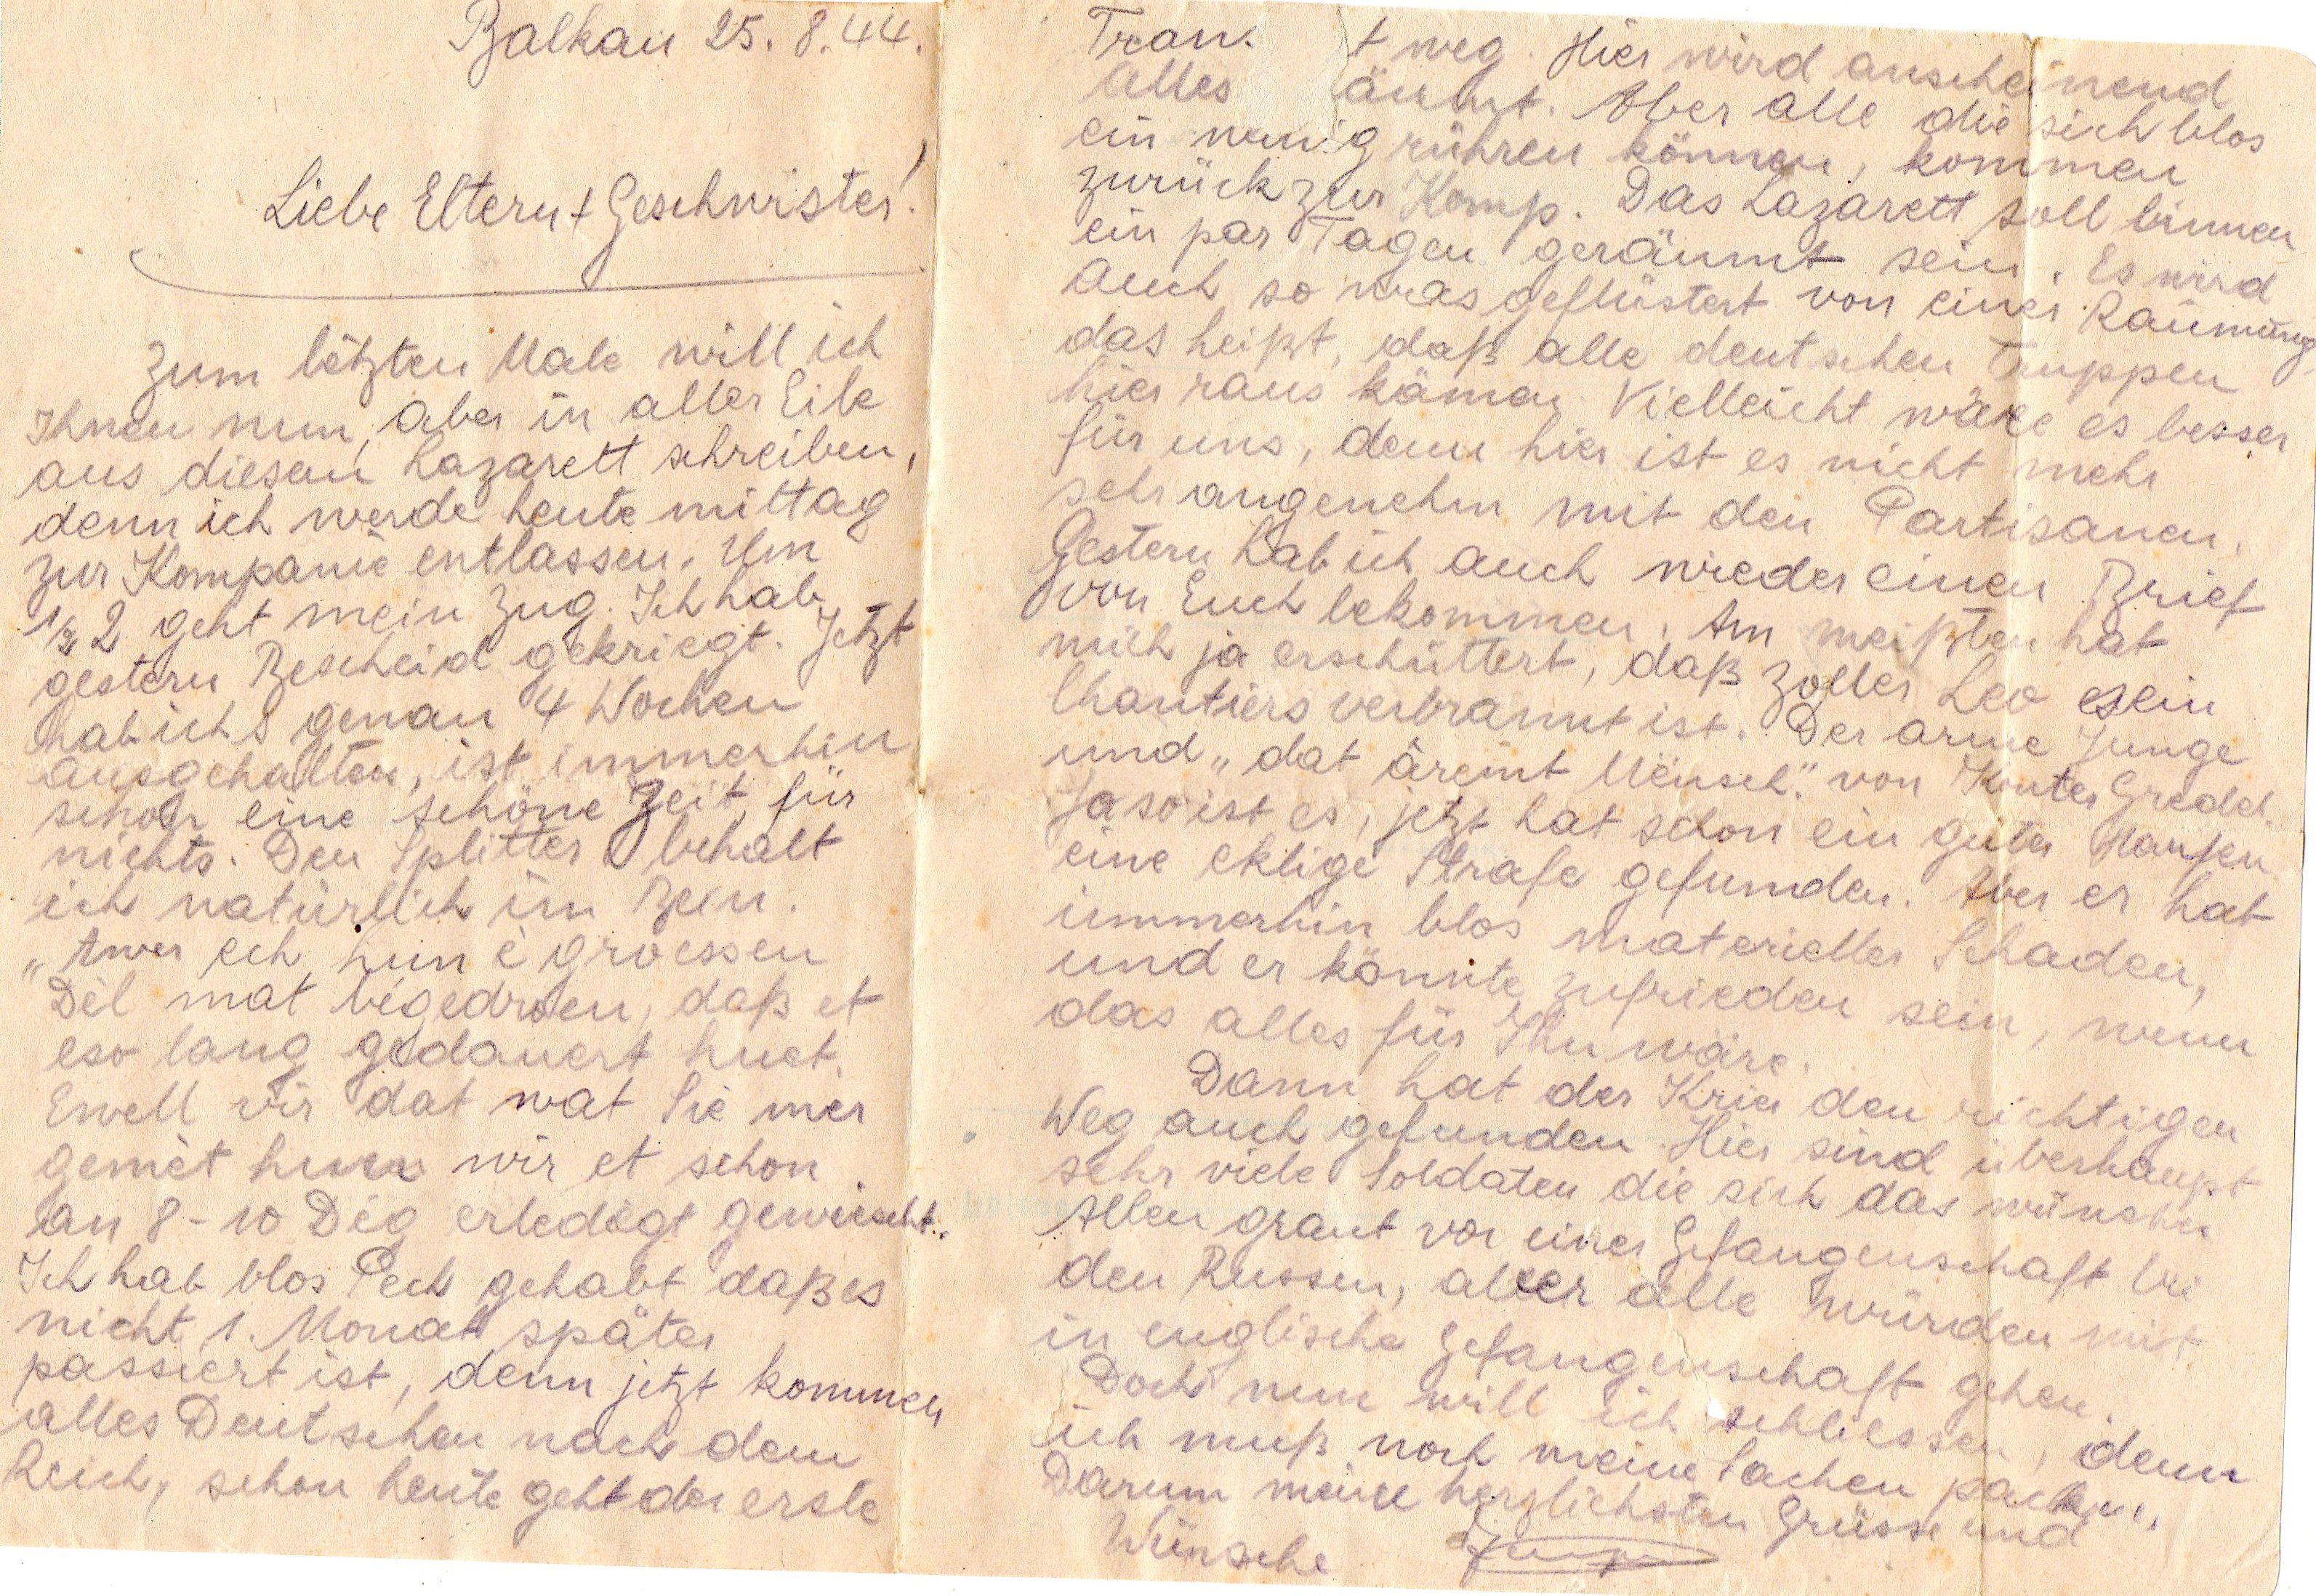 Balkan 25.8.44.
Liebe Eltern + Geschwister!
Zum letzten Male will ich
Ihnen nun, aber in aller Eile
aus diesem Lazarett schreiben,
denn ich werde heute mittag
zur Kompanie entlassen. Um
1/2 2 geht mein Zug. Ich hab
gestern Bescheid gekriegt. Jetzt
hab ichs genau 4 Wochen
ausgehalten, ist immerhin
schon eine schöne Zeit, für
nichts. Den Splitter behalt
ich natürlich im Bein.
„Awer ech hun e groessen
Dèl mat bégedroen, daß et
eso lang gedauert huet.
Ewell vir dat wat Sie mer
gemèt hun wir et schon
an 8-10 Dég erledégt gewiescht.
Ich hab blos Pech gehabt daß es
nicht 1. Monat später
passiert ist, denn jetzt kommen
alles Deutschen nach dem
Reich, schon heute geht der erste
Tran. t weg. Hier wird anscheinend
alles äumt. Aber alle die sich blos
ein wenig rühren können, kommen
zurück zur Komp. Das Lazarett soll binnen
ein par Tagen geräumt sein. Es wird
auch so was geflüstert von einer Räumung
das heißt, daß alle deutschen Truppen
hier raus kämen. Vielleicht wäre es besser
für uns, denn hier ist es nicht mehr
sehr angenehm mit den Partisanen.
Gestern hab ich auch wieder einen Brief
von Euch bekommen. Am meißten hat
mich ja erschüttert, daß Zoller Leo sein
Chantiers verbrannt ist. Der arme Junge
und „dat äremt Mënsch." von Konter Gredel.
Ja so ist es, jetzt hat schon ein guter Haufen
eine eklige Strafe gefunden. Aber er hat
immerhin blos materieller Schaden,
und er könnte zufrieden sein, wenn
das alles für Ihn wäre.
Dann hat der Krier den richtigen
Weg auch gefunden. Hier sind überhaupt
sehr viele Soldaten die sich das wünschen
Allen graut vor einer Gefangenschaft bei
den Russen, aber alle würden mit
in englische Gefangenschaft gehen.
Doch nun will ich schliessen, denn
ich muß noch meine Sachen packen.
Darum meine herzlichsten Grüsse und
Wünsche